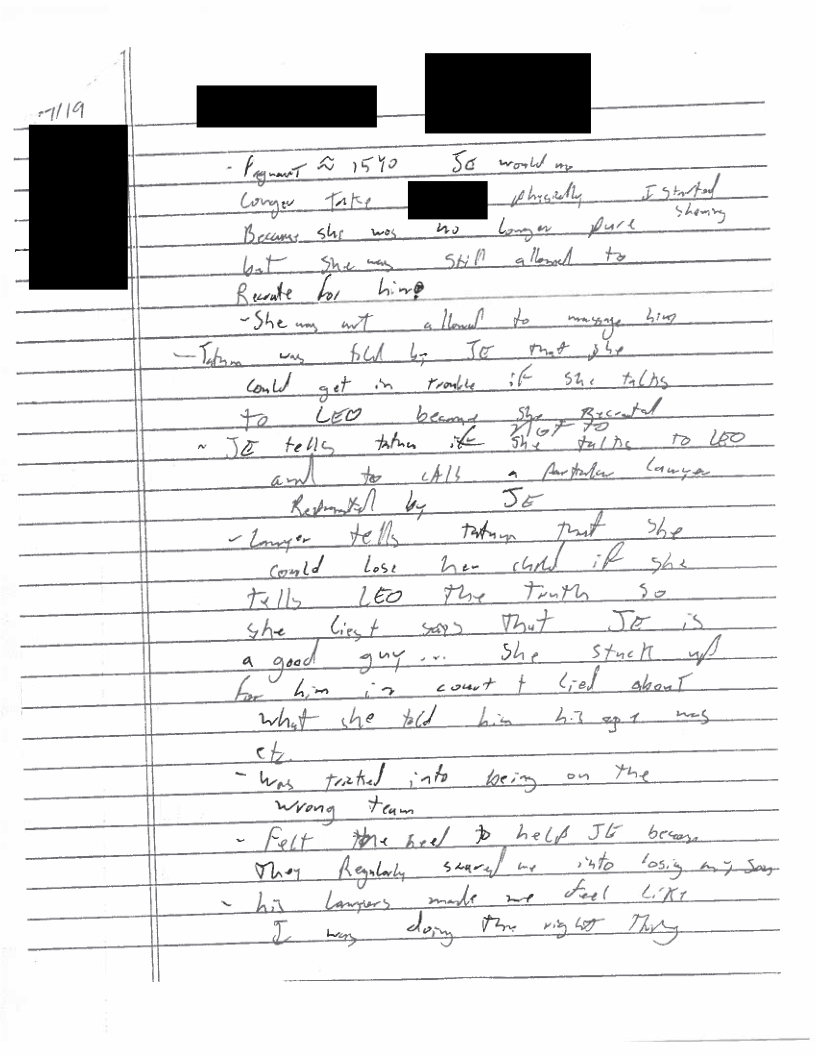 7/19
- Pregnant ≈ 15 YO JE would no
Longer Take physically I started
showing
Because she was no longer pure
but she was still allowed to
Recrute for him
- She was not allowed to massage him
- Tatum was told by JE that she
could get in trouble if she talks
to LEO because she Recruted
~ JE tells tatum if she talks to LEO
not to
and to cAll a particular Lawyer
by JE
- Lawyer tells tatum that she
could Lose her child if she
tells LEO The Truth so
she Lies + says That JE is
a good guy ... She stuck up
for him in court + Lied about
what she told him was
etc.
- Was tricked into being on the
wrong team
- Felt the need to help JE becaus
They Regularly scared me into losig my Son
- his Lawyers made me feel Like
I was doing The right Thing